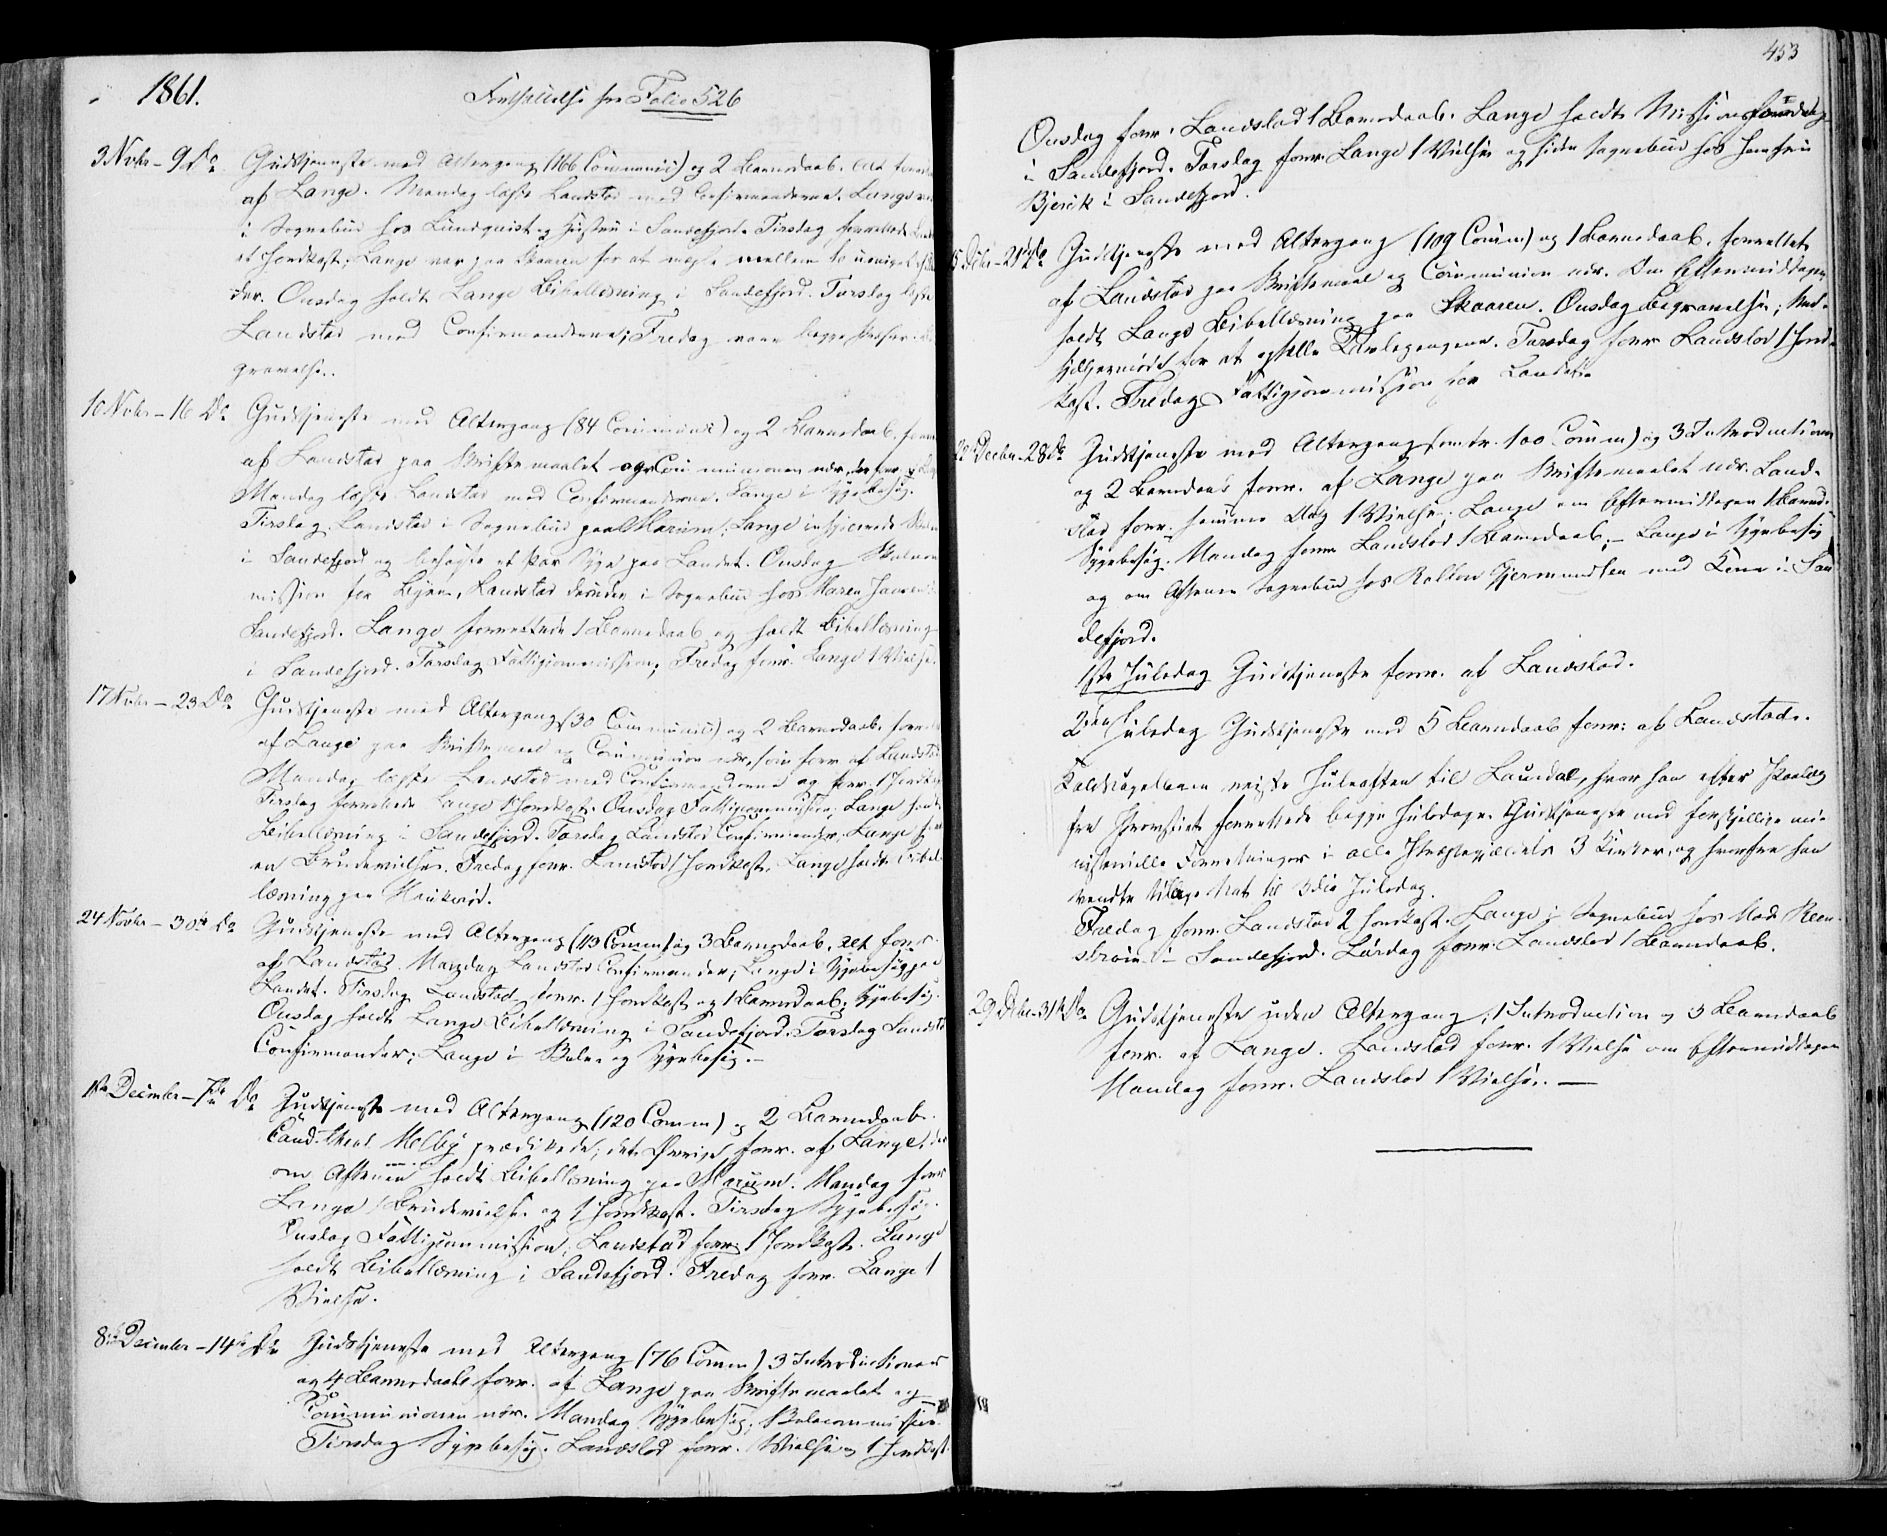 1861. Fortsættelse fra Folio 526
3 Novbr – 9 Do Gudstjeneste med Altergang (166 Communic) og 2 Barnedaab. Alt
af Lange. Mandag læste Landstad med Confirmanderne. Lange
i Sognebud hos Lundquist og Hustru i Sandefjord. Tirsdag forrettede
et Jordkast; Lange var paa Skaaen for at mægle mellem to uenige
der. Onsdag holdt Lange Bibellæsning i Sandefjord. Torsdag læste
Landstad med Confirmanderne; Fredag vare begge Præster
gravelse.
10 Novbr – 16 Do Gudstjeneste med Altergang (84 Communic) og 2 Barnedaab. forr
af Landstad paa Skriftemaalet og Communionen nær, der forr.
Mandag læste Landstad med Confirmanderne. Lange i Sygebesøg.
Tirsdag Landstad i Sognebud paa Marum; Lange inspicerede
i Sandefjord og besøgte et Par Syge paa Landet. Onsdag Skolecom
mission for Byen, Landstad derunder i Sognebud hos Maren Jansen i
Sandefjord. Lange forrettede 1 Barnedaab og holdt Bibellæsning
i Sandefjord. Torsdag Fattigcommission; Fredag forr. Lange 1 Vielse.
17 Novbr – 23 Do Gudstjeneste med Altergang (30 Communic) og 2 Barnedaab. forr
af Lange paa Skriftemaal og Communion nær, som forr af Landstad
Mandag læste Landstad med Confirmanderne og forr. 1 Jordkast
Tirsdag forrettede Lange 1 Jordkast. Onsdag Fattigcommission; Lange holdt
Bibellæsning i Sandefjord. Torsdag Landstad Confirmander. Lange
en Brudevielse. Fredag forr. Landstad 1 Jordkast. Lange holdt Bibel
læsning paa Haukerød.
24 Novbr – 30te Do Gudstjeneste med Altergang (113 Comm) og 3 Barnedaab, Alt forr.
af Landstad. Mandag Landstad Confirmander; Lange i Sygebesøg paa
Landet. Tirsdag Landstad forr. 1 Jordkast og 1 Barnedaab; Sygebesøg.
Onsdag holdt Lange Bibellæsning i Sandefjord. Torsdag Landstad
Confirmander; Lange i Skole og Sygebesøg. –
1ste December – 7de Do Gudstjeneste med Altergang (120 Comm) og 2 Barnedaab.
Cand. theol Melby prædikede; det Øvrige forr. af Lange, der
om Aftenen holdt Bibellæsning paa Marum. Mandag forr
Lange 1 Brudevielse og 1 Jordkast. Tirsdag Sygebesøg.
Onsdag Fattigcommission; Landstad forr. 1 Jordkast. Lange
holdt Bibellæsning i Sandefjord. Fredag forr. Lange 1
Vielse.
8de December – 14de Do Gudstjeneste med Altergang (76 Comm) 3 Introductioner
og 4 Barnedaab forr. af Lange paa Skriftemaalet og
Communionen nær. Mandag Sygebesøg; Skolecommission.
Tirsdag Sygebesøg. Landstad forr. 1 Vielse og 1 Jordkast.
453
Onsdag forr. Landstad 1 Barnedaab. Lange holdt Missionsforedrag
i Sandefjord. Torsdag forr. Lange 1 Vielse og siden Sognebud hos
i Sandefjord.
15 Decbr – 21de Do Gudstjeneste med Altergang (109 Comm) og 1 Barnedaab, forrettet
af Landstad paa Skriftemaal og Communion nær. Om Eftermiddagen
holdt Lange Bibellæsning paa Skaaren. Onsdag Begravelse; Med-
hjælpermøde for at opstille Torsdag forr Landstad 1 Jord-
kast. Fredag Fattigcommission for Landet.
22 Decbr – 28de Gudstjeneste med Altergang (omtr. 100 Comm) og 3 Introductioner
og 2 Barnedaab forr. af Lange paa Skriftemaalet nær. Land-
stad forr. samme Dag 1 Vielse; Lange om Eftermiddagen 1 Barned.
Sygebesøg. Mandag forr Landstad 1 Barnedaab; – Lange i Sygebesøg
og om Aftenen Sognebud hos Gjermundsen med Kone i San
defjord.
1ste Juledag Gudstjeneste forr. af Landstad.
2den Juledag Gudstjeneste med 5 Barnedaab forr. af Landstad.
Kaldscapellanen reiste Juleaften til Laurdal, hvor han efter
fra Provstiet forrettede begge Juledage Gudstjeneste med forskjellige mi-
nisterielle Forretninger i alle Præstegjældets 3 Kirker, og hvorfra han
vendte tilbage Nat til 3die Juledag.
Fredag forr. Landstad 2 Jordkast. Lange i Sognebud hos Mad. Reen-
strøm i Sandefjord. Lørdag forr. Landstad 1 Barnedaab.
29 Decbr–31te Do. Gudstjeneste uden Altergang; 1 Introduction og 3 Barnedaab
forr. af Lange. Landstad forr. 1 Vielse om Eftermiddagen
Mandag forr. Landstad 1 Vielse. —